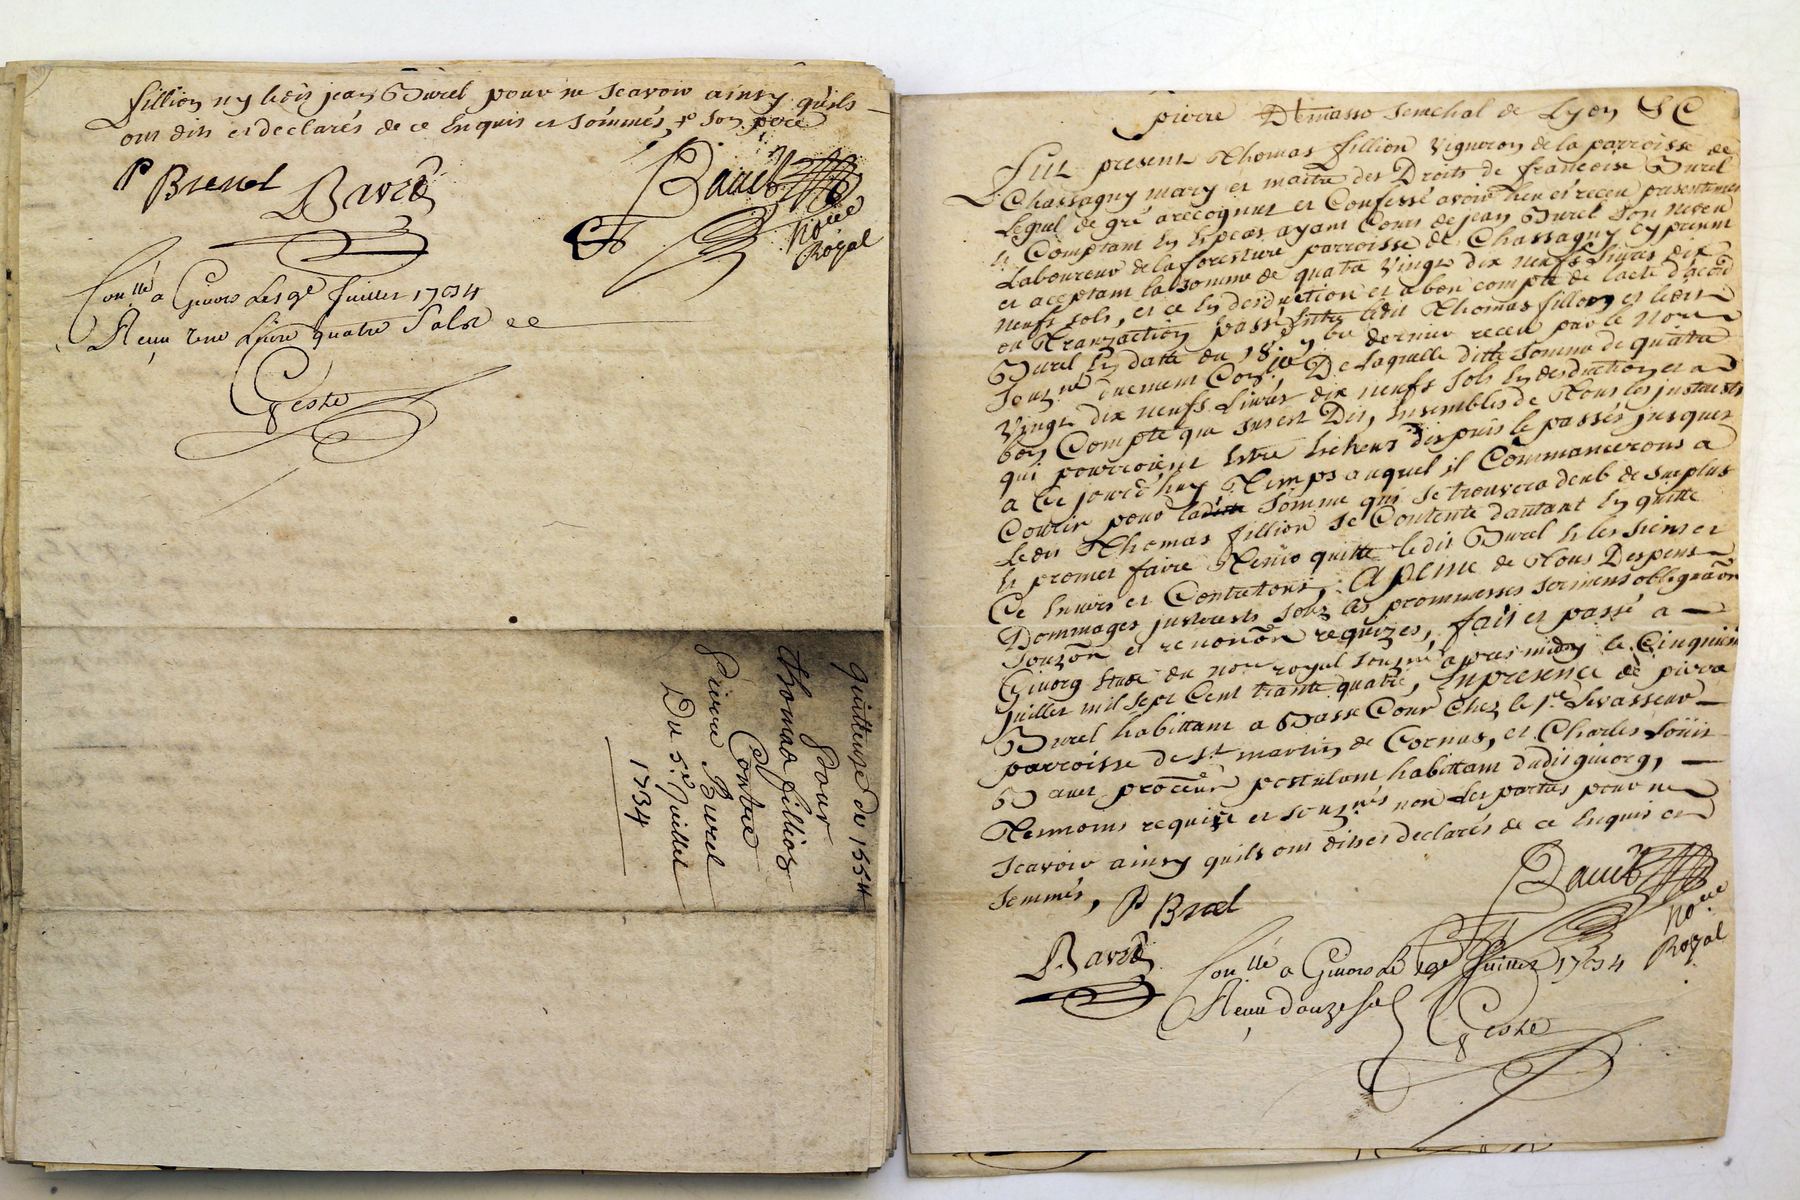 fillion ny ledit jean Burel pour ne scavoir ainsy quils
ont dits et declarés de ce Enquis et sommés, son pere
P Burel Bavet
Bauet
No.re Royal
Con.llé a Givors Les 9e Juillet 1734
Reçu une Livre quatre Sols
Geste
quittence de 155lt
pour
thomas fillion
Contre
Pierre Burel
Du 5.e Juillet
1734
pierre Demasso Senechal de Lyon &C
Fut present Thomas fillion Vigneron de la parroisse de
Chassagny mary et maitre des Droits de francoise Burel
Lequel de gré a recognut et Confessé avoir heu et receu presentement
Comptant En Especes ayant Cours de jean Burel son neveu
Laboureur de la forestiere parroisse de Chassagny Cy present
et aceptant la somme de quatre Vingt dix neufs Livres dix
neufs sols, et ce En desduction et a bon compte de lacte d'acord
ou Transaction passé Entre ledit Thomas fillion et ledit
Burel En datte du 18 dernier receu par le No.re
Souz.né duement Con.llé De Laquelle ditte somme de quatre
Vingt dix neufs Livres dix neufs sols En desduction et a
bon Compte que susest Dit, Ensembles de Tous les justerests
qui pourroient Estre Escheus despuis le passés jusques
a Ce jourd'huy Temps auquel il Commancerons a
Courir pour la somme qui se trouvera deub de surplus
Ledit Thomas fillion se Contente d'autant En quitte
Et promet faire Tenir quitte ledit Burel Et les siens et
Ce Envers et Contretous, A peine de Tous Despens
Dommages justerests sous les promesses serment obligaôn
souzôn et renonôn requizes, fait et passé a
Givorg Etude du No.re royal souz.né apres midy le Cinquieme
juillet mil sept Cent trante quatre, En presence de pierre
Burel habittant a Basse Cour Chez le s.r Levasseur
parroisse de St martin de Cornas, et Charles Loüis
Bavet procûeur postulant habittant dudit givorg,
Temoins requis et souz.nés non les parties pour ne
scavoir ainsy quils ont dits et declarés de ce Enquis et
sommés, P Burel
Bauet
No.re Royal
Bavet
Con.llé a Givors Le 9e Juillet 1734
Reçu douze sol
Geste